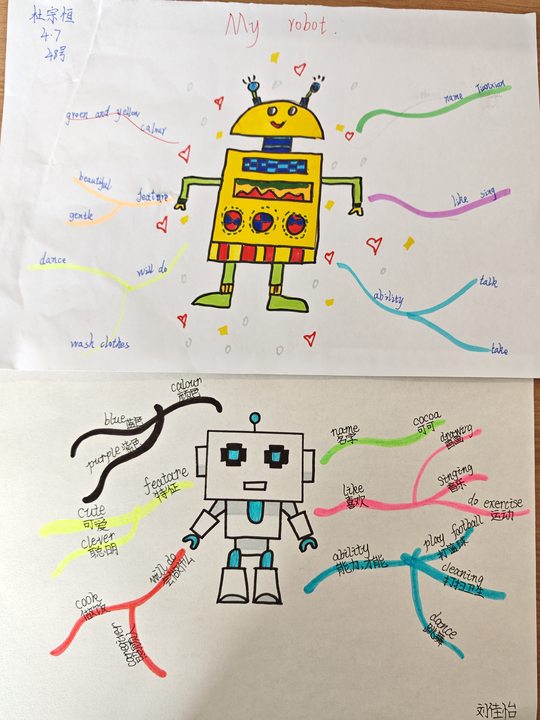 杜宗恒
4.7
48号
My robot.
green and yellow
calour
beautiful
feature
gentle
dance
will do
wash clothes
name Tuanxian
like sing
ability
talk
take
calour
颜色
blue 蓝色
purple 紫色
featore
特征
cute
可爱
clever
聪明
will do
cook
做饭
name
名字
cocoa
可可
like
喜欢
drawing
画画
singing
音乐
do exercise
运动
ability
能力,才能
play football
cleaning
打扫卫生
dance
跳舞
刘佳怡